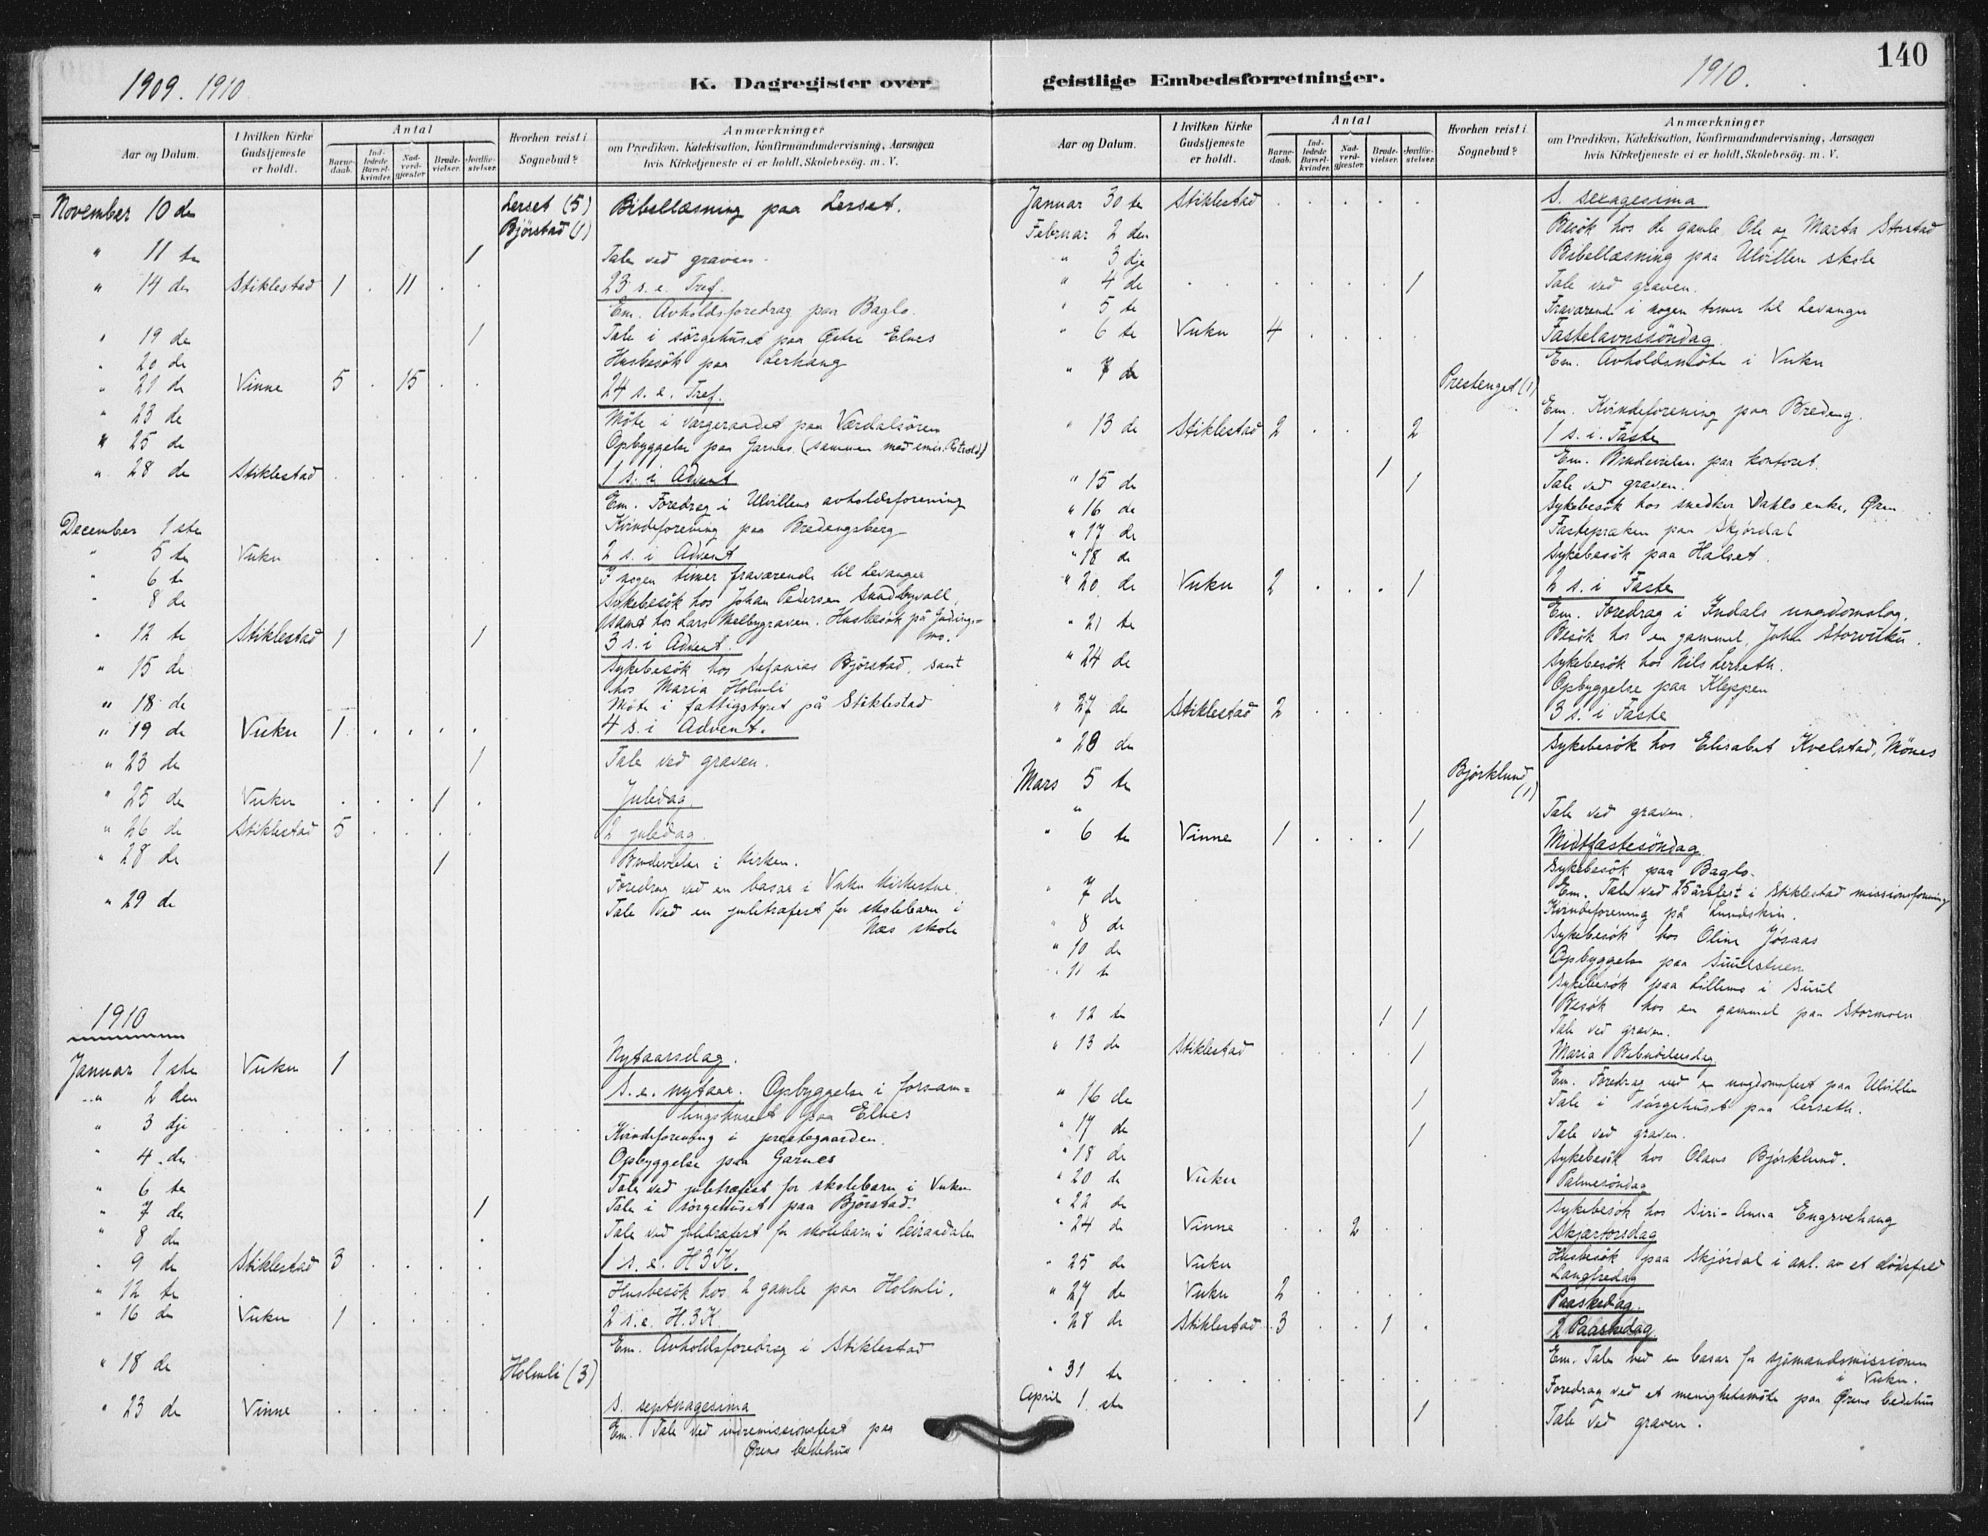 140
1909. 1910
K. Dagregister over
Aar og Datum.
I hvilken Kirke Gudstjeneste er holdt.
Antal
Barnedaab.
Indledede Barselkvinder.
Nadverdgjæster
Brudevielser.
Jordfæstelser.
Hvorhen reist i Sognebud?
Anmærkninger
om Prædiken, Katekisation, Konfirmandundervisning, Aarsagen
hvis Kirketjeneste ei er holdt, Skolebesøg. m. V.
November 10 de Lerset (5) Bibellæsning paa Lerset.
Bjørstad (1)
" 11 te 1 Tale ved graven.
" 14 de Stiklestad 1 . 11 . . 23 s. e. Tref.
Em. Avholdsforedrag paa Baglo.
" 19 de 1 Tale i sørgehuset paa Østre Elnes
" 20 de Husbesök paa Lerhaug
" 21 de Vinne 5 . 15 . . 24 s. e. Tref.
" 23 de Möte i vergeraadet paa Værdalsören
" 25 de Opbyggelse paa Garnes (sammen med emis.
" 28 de Stiklestad . . . . . 1 s. i Advent
Em. Foredrag i Ulvillens avholdsforening
December 1 ste Kvindeforening paa Bredingsberg
" 5 te Vuku . . . . 2 s. i Advent
" 6 te I nogen timer fraværende til Levanger
" 8 de Sykebesök hos Johan Pedersen
samt hos Lars Melbygraven. Husbesök på
" 12 te Stiklestad 1 1 3 s. i Advent.
" 15 de Sykebesök hos Sefanias Bjørstad, samt
hos Maria Holmli
" 18 de Möte i fattigstyret på Stiklestad
" 19 de Vuku 1 . . . . 4 s. i Advent.
" 23 de 1 Tale ved graven.
" 25 de Vuku . . . 1 . Juledag.
" 26 de Stiklestad 5 . . . . 2 juledag.
" 28 de 1 Brudevielse i Kirken.
Foredrag ved en basar i Vuku Kirkestue.
" 29 de Tale ved en juletræfest for skolebarn i
Næs skole
1910
Januar 1 ste Vuku 1 Nytaarsdag.
" 2 den s. e. nytaar. Opbyggelse i forsam-
lingshuset paa Elnes
" 3 dje Kvindeforening i prestegaarden.
" 4 de Opbyggelse paa Garnes
" 6 te Tale ved juletræfest for skolebarn i Vuku
" 7 de 1 Tale i sørgehuset paa Bjørstad.
" 8 de Tale ved juletræfest for skolebarn i Leiraadalen
" 9 de Stiklestad 3 . . . . 1 s. e. H3K.
" 12 te Husbesök hos 2 gamle paa Holmli.
" 16 de Vuku 1 . . . . 2 s. e. H.3K.
Em. Avholdsforedrag i Stiklestad
" 18 de Holmli (3)
" 23 de Vinne . . . . . S. septuagesima
Em. Tale ved indremissionsfest paa
Ørens bedehus
1910.
geistlige Embedsforretninger.
Aar og Datum.
I hvilken Kirke Gudstjeneste er holdt.
Antal
Barnedaab.
Indledede Barselkvinder.
Nadverdgjæster
Brudevielser.
Jordfæstelser.
Hvorhen reist i Sognebud?
Anmærkninger
om Prædiken, Katekisation, Konfirmandundervisning, Aarsagen
hvis Kirketjeneste ei er holdt, Skolebesøg. m. V.
Januar 30 te Stiklestad . . . . . S. sexagesima
Februar 2 den Besök hos de gamle Ole og Marta Storstad
" 3 dje Bibellæsning paa Ulvillen skole
" 4 de . . . . . 1 Tale ved graven.
" 5 te Fraværende i nogen timer til Levanger
" 6 te Vuku 4 . . . . Fastelavnssöndag
Em. Avholdsmöte i Vuku
" 7 de Prestenget (1)
Em. Kvindeforening paa Bredeng.
" 13 de Stiklestad 2 . . . 2 1 s. i. Faste
1 Em. Brudevielse paa kontoret.
" 15 de 1 Tale ved graven.
" 16 de Sykebesök hos snedker Dahls enke, Øren
" 17 de Fastepræken paa Skjørdal
" 18 de Sykebesök paa Halset.
" 20 de Vuku 2 . . . 1 2 s. i Faste
Em. Foredrag i Indals ungdomslag.
" 21 te Besök hos en gammel, John Storvuku.
" 24 de Sykebesök hos Nils Lerseth.
Opbyggelse paa Kleppen
" 27 de Stiklestad 2 . . . . 3 s. i Faste
" 28 de Sykebesök hos Elisabet Kvelstad, Mönes
Mars 5 te Bjørklund (1)
" 1 Tale ved graven.
" 6 te Vinne 1 . . . 1 Midtfastesöndag
Sykebesök paa Baglo.
Em. Tale ved 25 årsfest i Stiklestad missionsforening
" 7 de Kvindeforening på
" 8 de Sykebesök hos Oline Jösaas
" 10 de Opbyggelse paa Suulstuen
" 11 te Sykebesök paa Lillemo i Suul
Besök hos en gammel paa Stormoen
" 12 te 1 1 Tale ved graven.
" 13 de Stiklestad 1 Maria Bebudelsesdag
Em. Foredrag ved en ungdomsfest paa Ulvillen
" 16 de 1 Tale i sørgehuset paa Lerseth.
" 17 de 1 Tale ved graven.
" 18 de Sykebesök hos Olaus Bjørklund.
" 20 de Vuku Palmesöndag
" 22 de Sykebesök hos Siri-Anna
" 24 de Vinne . . 2 . . Skjærtorsdag
Husbesök paa Skjørdal i anl. av et dödsfald
" 25 de Vuku Langfredag
" 27 de Vuku 2 Paaskedag.
" 28 de Stiklestad 3 . . 1 . 2 Paaskedag.
Em. Tale ved en basar for sjömandsmissionen
i Vuku.
" 31 te Foredrag ved et menighetsmöte paa Ørens bedehus
April 1. ste 1 Tale ved graven.